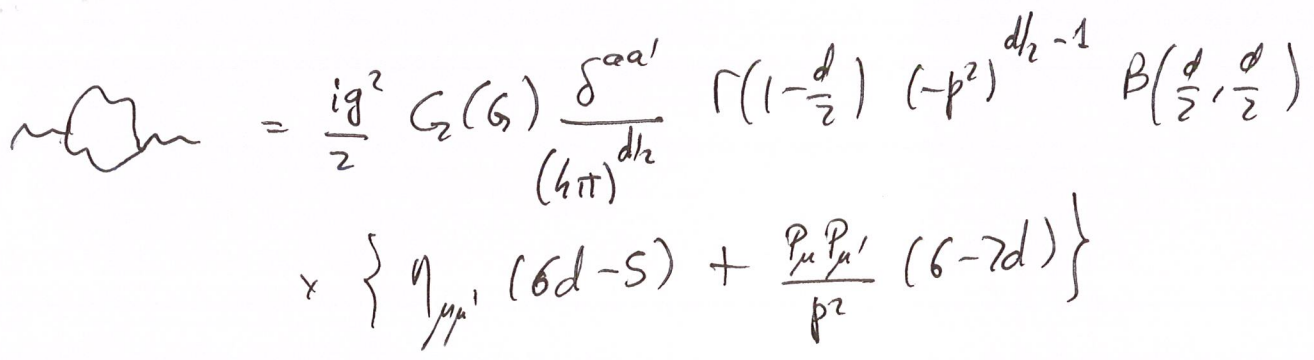 = ig²/2 C₂(G) δ^{aa'}/(4π)^{d/2} Γ(1-d/2) (-p²)^{d/2-1} B(d/2, d/2)
× { η_{μμ'} (6d-5) + P_μ P_{μ'}/p² (6-7d) }